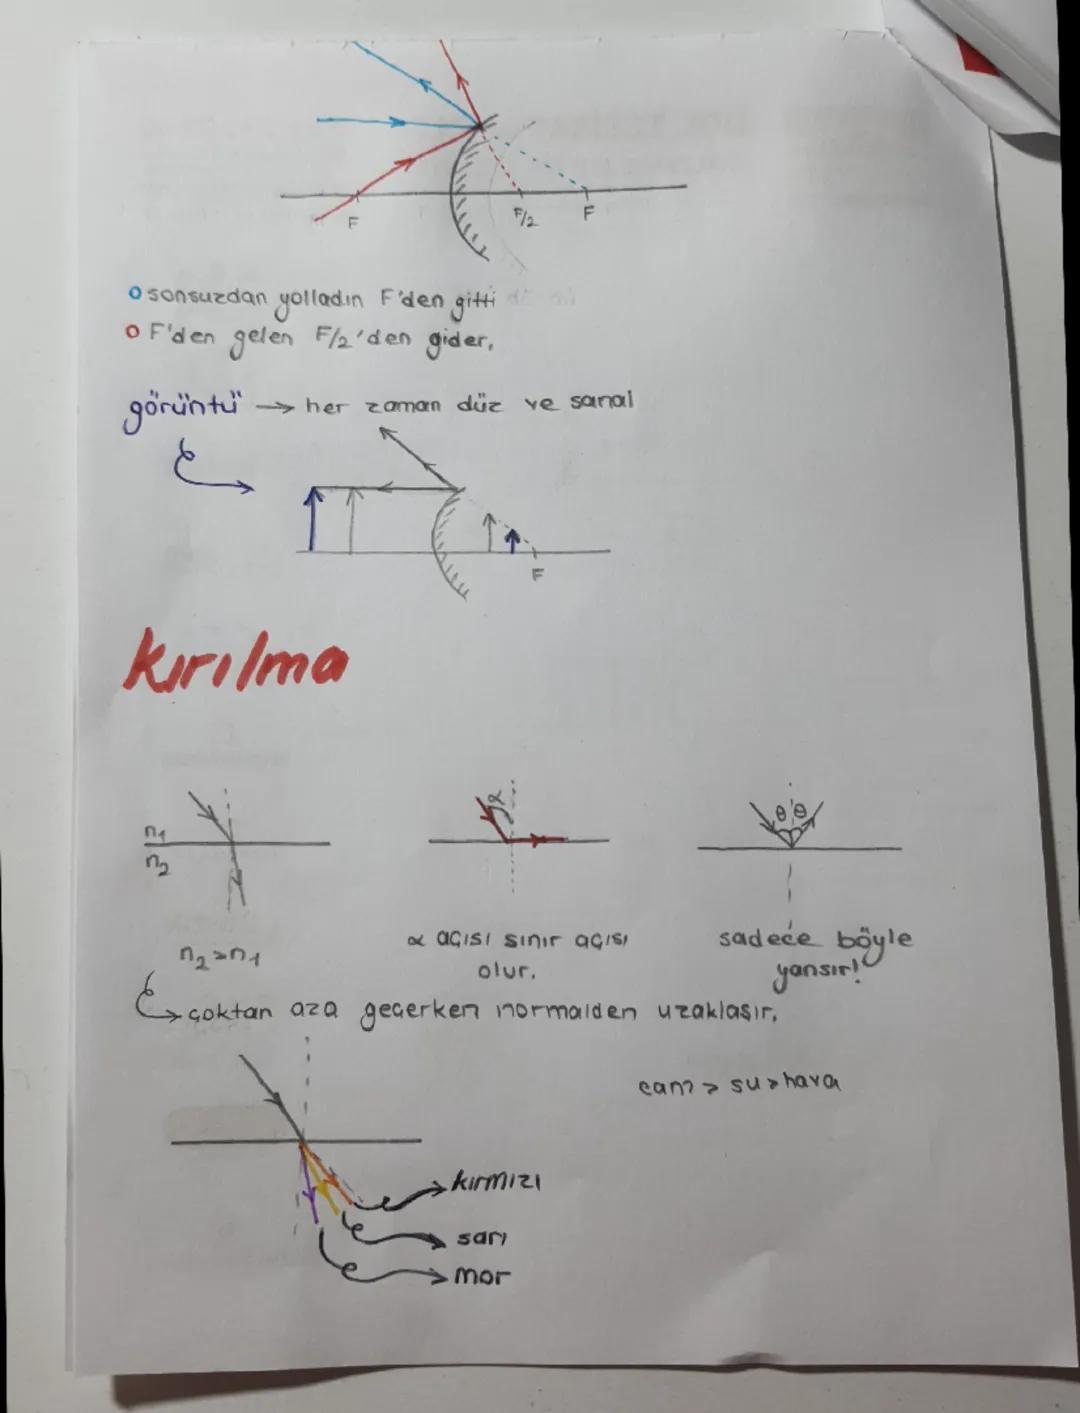 F
F/2
F
sonsuzdan yolladın F'den gitti
F'den gelen F/2'den gider.
görüntü → her zaman düz ve sanal
F
kırılma
n1
n2
α
θ θ
n2>n1
α açısı sınır açısı
olur.
sadece böyle
yansır!
çoktan aza geçerken normalden uzaklaşır.
cam > su > hava
kırmızı
sarı
mor